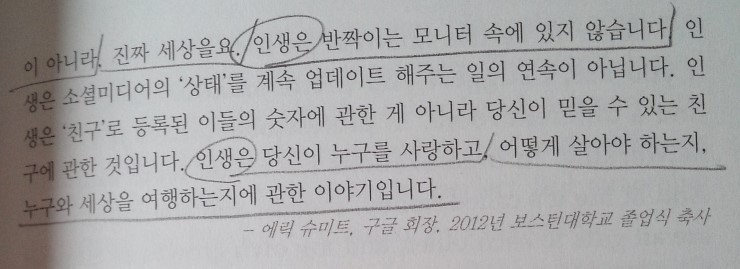 이 아니라, 진짜 세상을요. 인생은 반짝이는 모니터 속에 있지 않습니다. 인
생은 소셜미디어의 '상태'를 계속 업데이트 해주는 일의 연속이 아닙니다. 인
생은 '친구'로 등록된 이들의 숫자에 관한 게 아니라 당신이 믿을 수 있는 친
구에 관한 것입니다. 인생은 당신이 누구를 사랑하고, 어떻게 살아야 하는지,
누구와 세상을 여행하는지에 관한 이야기입니다.
– 에릭 슈미트, 구글 회장. 2012년 보스턴대학교 졸업식 축사